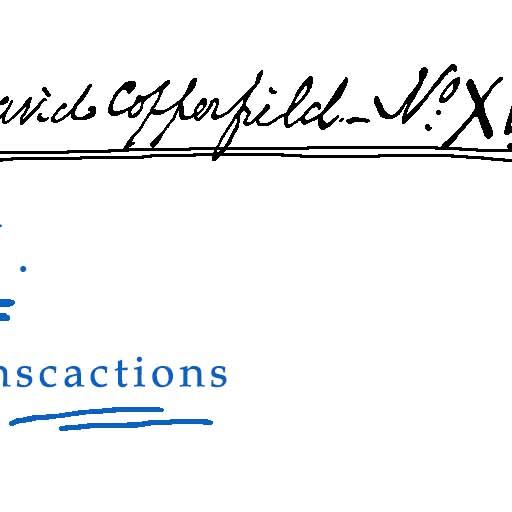 avid Copperfield._ No. X
.
nscactions